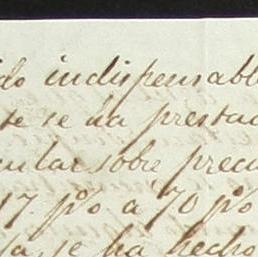 do indispensable
te se ha prestad
cular sobre precu
17. p% a 70 p%
ja, se ha hecho